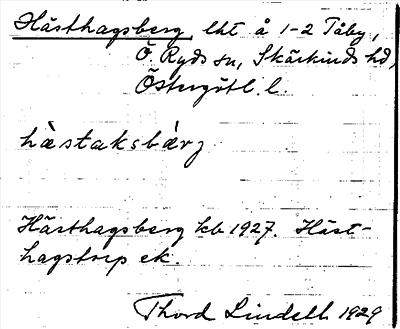 Hästhagsberg, lht å 1-2 Tåby,
Ö. Ryds sn, Skärkinds hd,
Östergötl. l.
hàstaksbàrj
Hästhagsberg kb 1927. Häst-
hagstorp ek.
Thord Lindell 1929